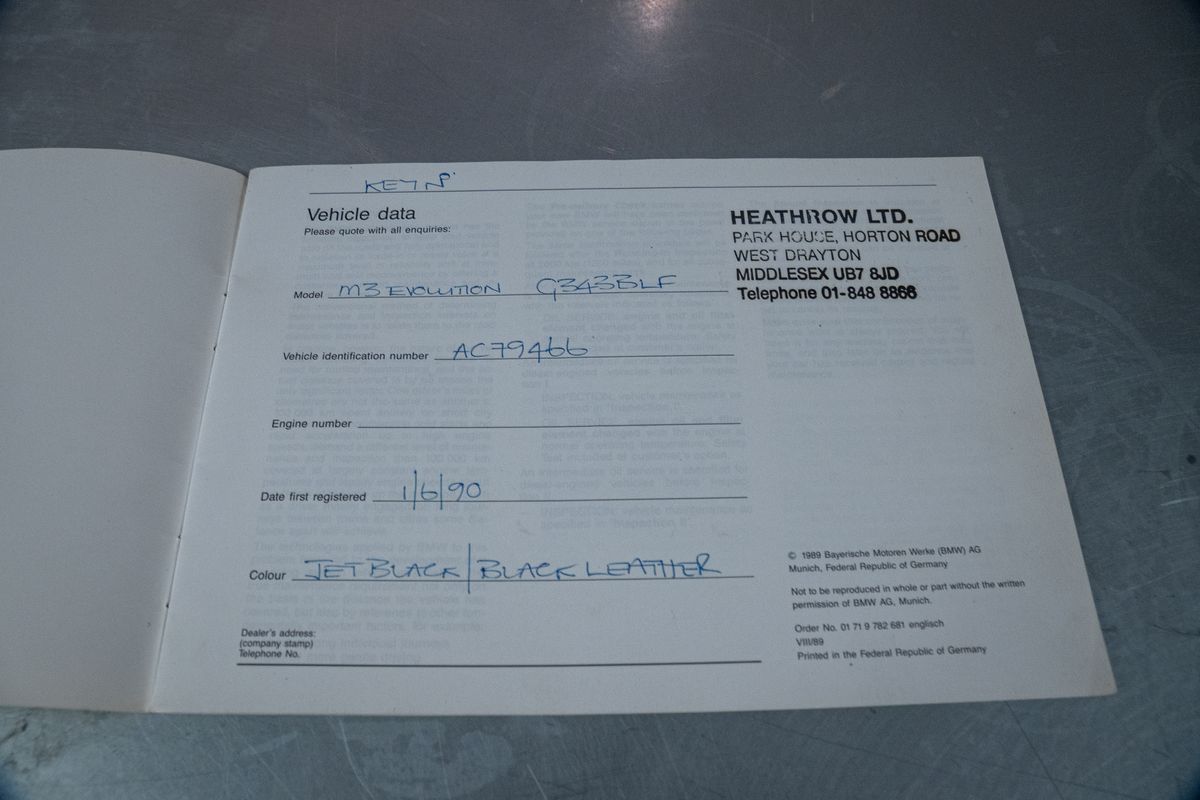 KEY Nº
Vehicle data
Please quote with all enquiries:
HEATHROW LTD.
PARK HOUSE, HORTON ROAD
WEST DRAYTON
MIDDLESEX UB7 8JD
Telephone 01-848 8866
Model M3 EVOLUTION G343BLF
Vehicle identification number AC79466
Engine number
Date first registered 1/6/90
Colour JET BLACK / BLACK LEATHER
Dealer's address:
(company stamp)
Telephone No.
© 1989 Bayerische Motoren Werke (BMW) AG
Munich, Federal Republic of Germany
Not to be reproduced in whole or part without the written
permission of BMW AG, Munich.
Order No. 01 71 9 782 681 englisch
VIII/89
Printed in the Federal Republic of Germany